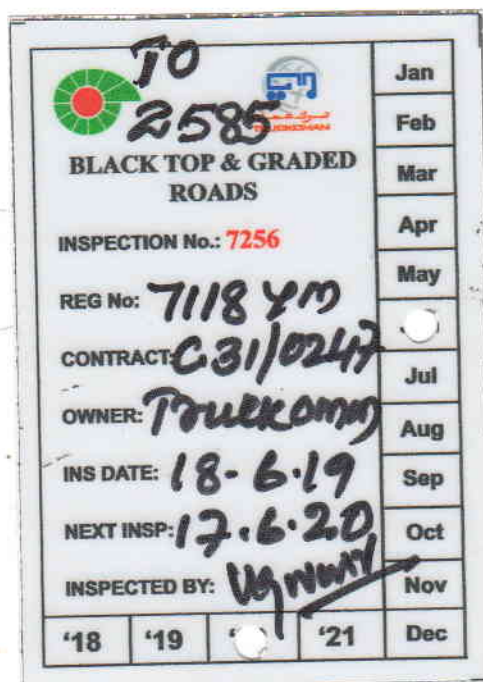 TO
2585
BLACK TOP & GRADED
ROADS
INSPECTION No.: 7256
REG No: 7118 YM
CONTRACT: C31/0247
OWNER: Truckoman
INS DATE: 18-6-19
NEXT INSP: 17.6.20
INSPECTED BY:
Jan
Feb
Mar
Apr
May
Jul
Aug
Sep
Oct
Nov
Dec
'18 '19 '21